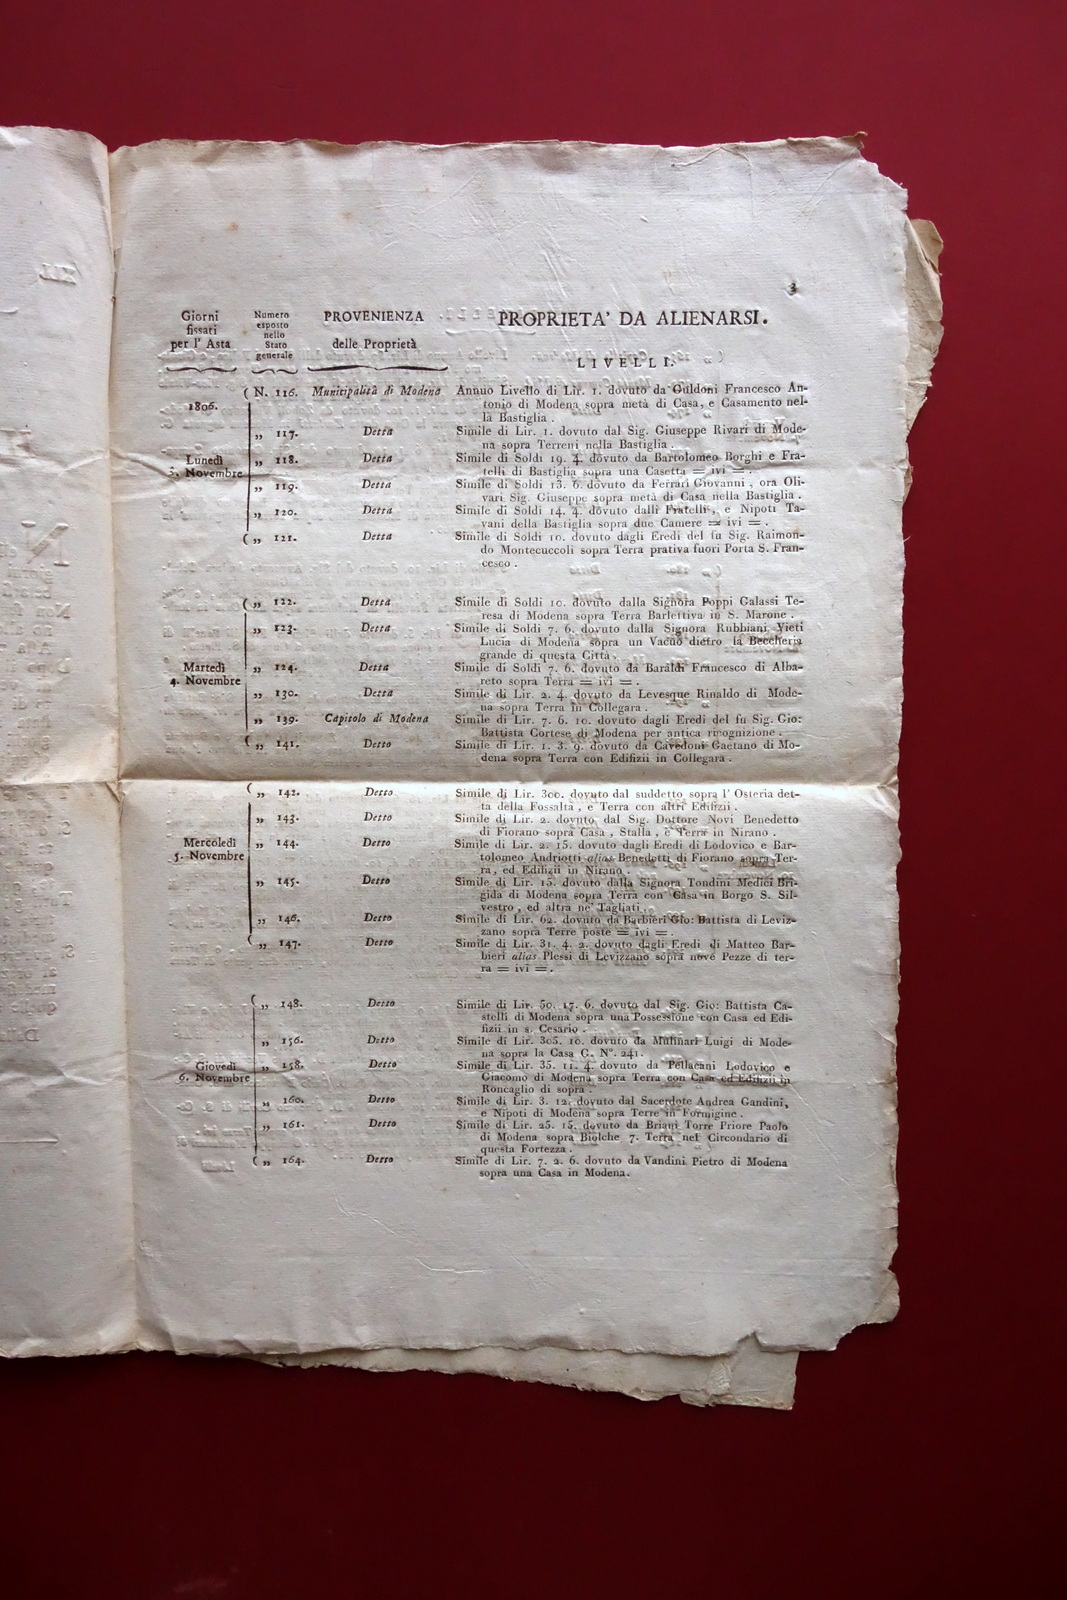 3
Giorni
fissati
per l' Asta
Numero
esposto
nello
Stato
generale
PROVENIENZA
delle Proprietà
PROPRIETA' DA ALIENARSI.
LIVELLI.
1806.
( N. 116. Municipalità di Modena Annuo Livello di Lir. 1. dovuto da Guldoni Francesco An-
tonio di Modena sopra metà di Casa, e Casamento nel-
la Bastiglia .
„ 117. Detta Simile di Lir. 1. dovuto dal Sig. Giuseppe Rivari di Mode-
na sopra Terreni nella Bastiglia .
Lunedì
3. Novembre
„ 118. Detta Simile di Soldi 19. 4. dovuto da Bartolomeo Borghi e Fra-
telli di Bastiglia sopra una Casetta = ivi = .
„ 119. Detta Simile di Soldi 13. 6. dovuto da Ferrari Giovanni , ora Oli-
vari Sig. Giuseppe sopra metà di Casa nella Bastiglia .
„ 120. Detta Simile di Soldi 14. 4. dovuto dalli Fratelli , e Nipoti Ta-
vani della Bastiglia sopra due Camere = ivi = .
( „ 121. Detta Simile di Soldi 10. dovuto dagli Eredi del fu Sig. Raimon-
do Montecuccoli sopra Terra prativa fuori Porta S. Fran-
cesco .
( „ 122. Detta Simile di Soldi 10. dovuto dalla Signora Poppi Galassi Te-
resa di Modena sopra Terra Barlettiva in S. Marone .
„ 123. Detta Simile di Soldi 7. 6. dovuto dalla Signora Rubbiani Vieti
Lucia di Modena sopra un Vacuo dietro la Beccheria
grande di questa Città .
Martedì
4. Novembre
„ 124. Detta Simile di Soldi 7. 6. dovuto da Baraldi Francesco di Alba-
reto sopra Terra = ivi = .
„ 130. Detta Simile di Lir. 2. 4. dovuto da Levesque Rinaldo di Mode-
na sopra Terra in Collegara .
„ 139. Capitolo di Modena Simile di Lir. 7. 6. 10. dovuto dagli Eredi del fu Sig. Gio:
Battista Cortese di Modena per antica ricognizione .
( „ 141. Detto Simile di Lir. 1. 3. 9. dovuto da Cavedoni Gaetano di Mo-
dena sopra Terra con Edifizii in Collegara .
( „ 142. Detto Simile di Lir. 300. dovuto dal suddetto sopra l' Osteria det-
ta della Fossalta , e Terra con altri Edifizii .
„ 143. Detto Simile di Lir. 2. dovuto dal Sig. Dottore Novi Benedetto
di Fiorano sopra Casa , Stalla , e Terra in Nirano .
Mercoledì
5. Novembre
„ 144. Detto Simile di Lir. 2. 15. dovuto dagli Eredi di Lodovico e Bar-
tolomeo Andriotti alias Benedotti di Fiorano sopra Ter-
ra , ed Edifizii in Nirano .
„ 145. Detto Simile di Lir. 15. dovuto dalla Signora Tondini Medici Bri-
gida di Modena sopra Terra con Casa in Borgo S. Sil-
vestro , ed altra ne' Tagliati .
„ 146. Detto Simile di Lir. 62. dovuto da Barbieri Gio: Battista di Leviz-
zano sopra Terre poste = ivi = .
( „ 147. Detto Simile di Lir. 31. 4. 2. dovuto dagli Eredi di Matteo Bar-
bieri alias Plessi di Levizzano sopra nove Pezze di ter-
ra = ivi = .
( „ 148. Detto Simile di Lir. 50. 17. 6. dovuto dal Sig. Gio: Battista Ca-
stelli di Modena sopra una Possessione con Casa ed Edi-
fizii in s. Cesario .
„ 156. Detto Simile di Lir. 305. 10. dovuto da Mulinari Luigi di Mode-
na sopra la Casa C. N°. 241.
Giovedì
6. Novembre
„ 158. Detto Simile di Lir. 35. 11. 4. dovuto da Pellacani Lodovico e
Giacomo di Modena sopra Terra con Casa ed Edifizii in
Roncaglio di sopra .
„ 160. Detto Simile di Lir. 3. 12. dovuto dal Sacerdote Andrea Gandini,
e Nipoti di Modena sopra Terre in Formigine .
„ 161. Detto Simile di Lir. 25. 15. dovuto da Briani Torre Priore Paolo
di Modena sopra Biolche 7. Terra nel Circondario di
questa Fortezza .
( „ 164. Detto Simile di Lir. 7. 2. 6. dovuto da Vandini Pietro di Modena
sopra una Casa in Modena.